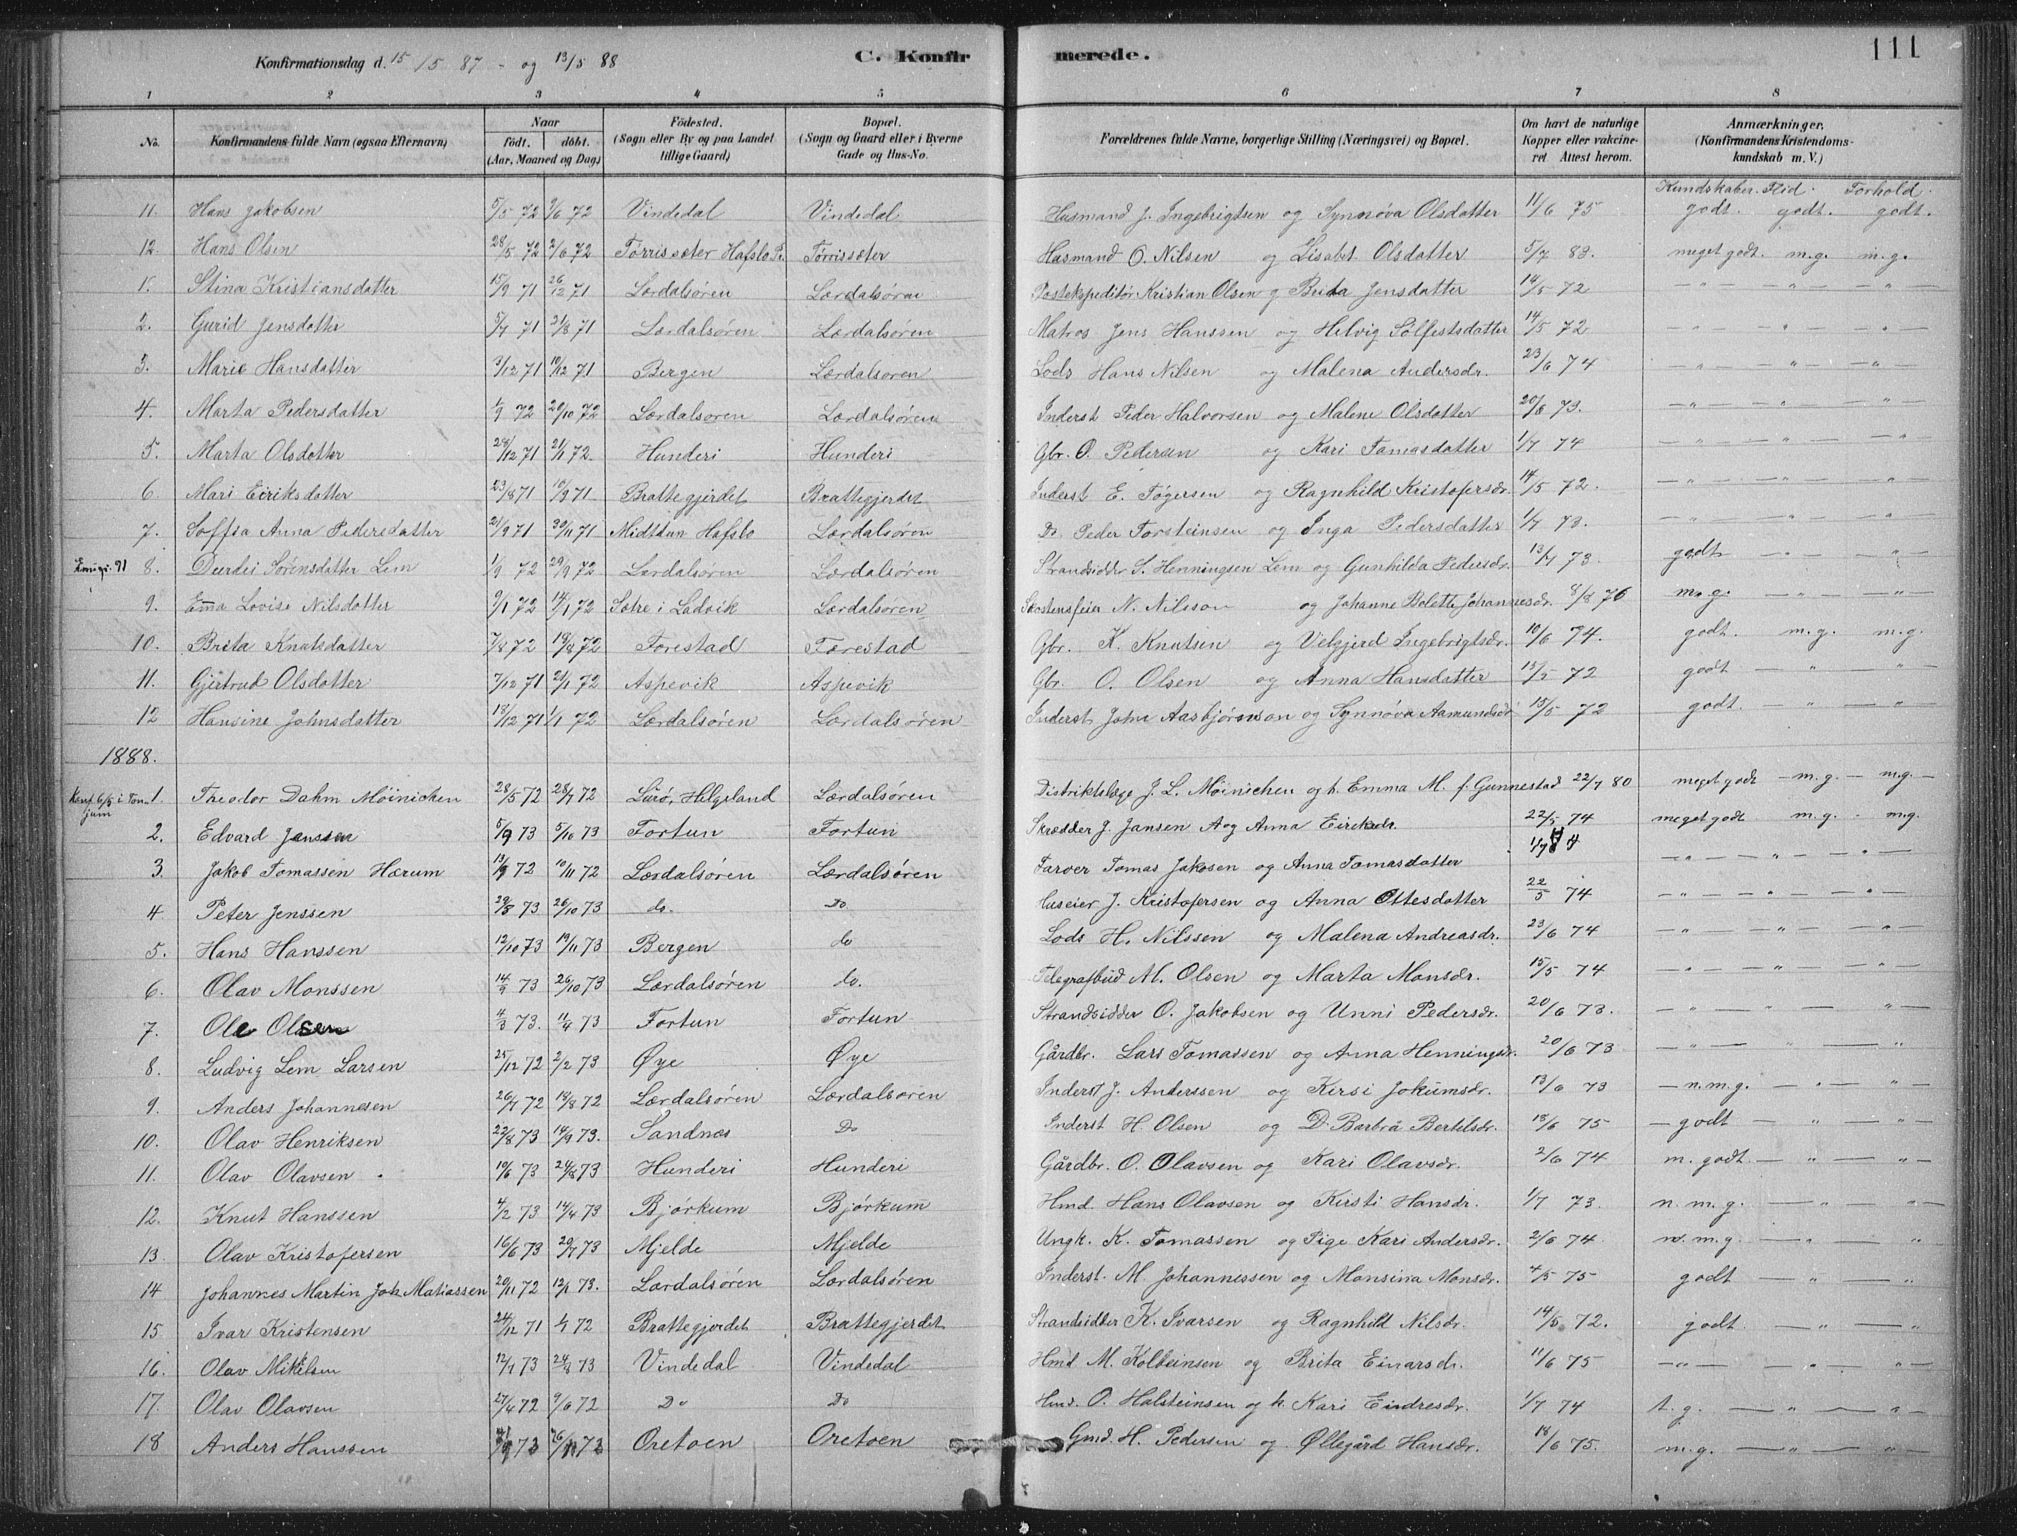 Konfirmationsdag d. 15/5 87 - og 13/5 88 C. Konfirmerede. 111
1 2 3 4 5 6 7 8
No. Konfirmandens fulde Navn (ogsaa Efternavn) Naar födt. döbt. (Aar, Maaned og Dag) Födested. (Sogn eller By og paa Landet tillige Gaard) Bopæl. (Sogn og Gaard eller i Byerne Gade og Hus-No. Forældrenes fulde Navne, borgerlige Stilling (Næringsvei) og Bopæl. Om havt de naturlige Kopper eller vakcineret Attest herom. Anmærkninger, (Konfirmandens Kristendomskundskab m. V.)
Kundskaber. Flid. Forhold.
11. Hans Jakobsen 5/5 72 9/6 72 Vindedal Vindedal Husmand J. Ingebrigtsen og Synnöva Olsdatter 11/6 75 godt. godt. godt.
12. Hans Olsen 28/5 72 2/6 72 Törrissæter Hafslo Pr. Törrissæter Husmand O. Nilsen og Lisabet Olsdatter 5/7 83. meget godt. m.g. m.g.
1. Stina Kristiansdatter 15/9 71 26/12 71 Lærdalsören Lærdalsören Postekspeditör Kristian Olsen og Brita Jensdatter 14/5 72 — " — " — " —
2. Gurid Jensdatter 5/7 71 21/8 71 Lærdalsören Lærdalsören Matros Jens Hanssen og Helvig Sölfestsdatter 14/5 72 " " "
3. Marie Hansdatter 3/12 71 10/12 71 Bergen Lærdalsören Lods Hans Nilsen og Malena Andersdr. 23/6 74 — " — " — " —
4. Marta Pedersdatter 1/9 72 20/10 72 Lærdalsören Lærdalsören Inderst Peder Halvorsen og Malene Olsdatter 20/6 73. — " — " — " —
5. Marta Olsdatter 24/12 71 21/1 72. Hunderi Hunderi Gbr. O. Pedersen og Kari Tomasdatter 1/7 74 — " — " — " —
6 Mari Eiriksdatter 23/8 71 10/9 71 Brattegjerdet Brattegjerdet Inderst E. Tögersen og Ragnhild Kristofersdr. 14/5 72. — " — " — " —
7. Soffia Anna Pedersdatter 21/9 71 30/11 71 Midttun Hafslo Lærdalsören Do Peder Torsteinsen og Inga Pedersdatter 1/7 73. — " — " — " —
Emigr. 91 8. Durdei Sörensdatter Lem 1/9 72 29/9 72 Lærdalsören Lærdalsören Strandsidder S. Henningsen Lem og Gunhilda Pedersdr. 13/7 73. godt — " — " —
9. Emma Lovise Nilsdatter 9/1 72 14/1 72 Sætre i Ladvik Lærdalsören Skorstensfeier N. Nilsson og Johanne Bolette Johannesdr. 8/8 76 m.g. — " — " —
10. Brita Knutsdatter 7/8 72 19/8 72 Forestad Færestad Gbr. K. Knutsen og Velgjerd Ingebrigtsdr. 10/6 74. godt. m.g. m.g.
11. Gjertrud Olsdatter 7/12 71 21/1 72 Aspevik Aspevik Gbr. O. Olsen og Anna Hansdatter 13/5 72 godt — " — " —
12 Hansine Johnsdatter 13/12 71 1/1 72 Lærdalsören Lærdalsören Inderst John Aasbjörnson og Synnöva Aamundsdr 15/5 72 godt. " — " —
1888.
Konf. 6/5 i Tonjum 1. Theodor Dahm Möinichen 28/5 72 28/7 72 Lurö, Helgeland Lærdalsören Distriktslæge J. L. Möinichen og h. Emma M. f. Gunnestad 22/7 80 meget godt — m.g. — m.g.
2. Edvard Janssen 5/9 73 5/10 73 Fortun Fortun Skrædder J. Jansen og Anna Eiriksdr. 22/5 74 meget godt m.g. . m.g.
3. Jakob Tomassen Hærum 13/9 72 10/11 72 Lærdalsören Lærdalsören Farver Tomas Jakosen og Anna Tomasdatter — " — " — " —
4 Peter Jenssen 29/8 73 26/10 73 do. Do Huseier J. Kristofersen og Anna Ottesdatter 22/5 74 — " — " — " —
5. Hans Hanssen 12/10 73 19/11 73 Bergen do Lods H. Nilssen og Malena Andreasdr. 23/6 74 — " — " — " —
6. Olav Monssen 14/9 73 26/10 73 Lærdalsören do. Telegrafbud M. Olsen og Marta Monsdr. 15/5 74 — " — " — " —
7. Ole Olsen 4/3 73. 11/4 73 Fortun Fortun Strandsidder O. Jakobsen og Unni Pedersdr. 20/6 73. — " — " — " —
8. Ludvig Lem Larsen 25/12 72 2/2 73 Øye Øye Gårdbr. Lars Tomassen og Anna Henningsdr. 20/6 73 — " — " — " —
9. Anders Johannesen 26/7 72 18/8 72 Lærdalsören Lærdalsören Inderst J. Anderssen og Kirsi Jokumsdr. 13/6 73 — n.m.g. — " — " —
10. Olav Henriksen 22/8 73 14/9 73. Sandnæs Do Inderst H. Olsen og D. Barbrå Bertilsdr. 18/6 75 — godt — " — " —
11. Olav Olavsen 10/6 73 24/6 73 Hunderi Hunderi Gårdbr. O. Olavsen og Kari Olavsdr. 2/6 74 m. godt. — " — " —
12. Knut Hanssen 4/2 73 14/4 73 Björkum Björkum Hmd. Hans Olavsen og Kirsti Hansdr. 1/7 73. n. m. g. — " — " —
13. Olav Kristofersen 16/6 73 20/7 73 Mjelde Mjelde Ungk. K. Tomassen og Pige Kari Andersdr. 2/6 74. n. m. g. — " — " —
14 Johannes Martin Joh. Matiassen 20/11 72 12/1 73. Lærdalsören Lærdalsören Inderst. M. Johannessen og Monsina Monsdr. 4/5 75 godt — " — " —
15. Ivar Kristensen 24/12 71 1/1 72 Brattegjerdet Brattegjerdet Strandsidder K. Ivarsen og Ragnhild Nilsdr. 14/5 72. godt. — " — " —
16. Olav Mikkelsen 12/1 73 24/3 73 Vindedal Vindedal Hmd M. Kolbeinsen og Brita Einarsdr. 11/6 75 — " — " — " —
17. Olav Olavsen 27/4 72 9/6 72 Do Do Hmd. O. Halsteinsen og h. Kari Eindresdr. 1/7 74 t. g. — " — " —
18 Anders Hanssen Oretoen Oretoen Gmd. H. Pedersen og Øllegård Hansdr. 18/6 75. m.g. — " — " —